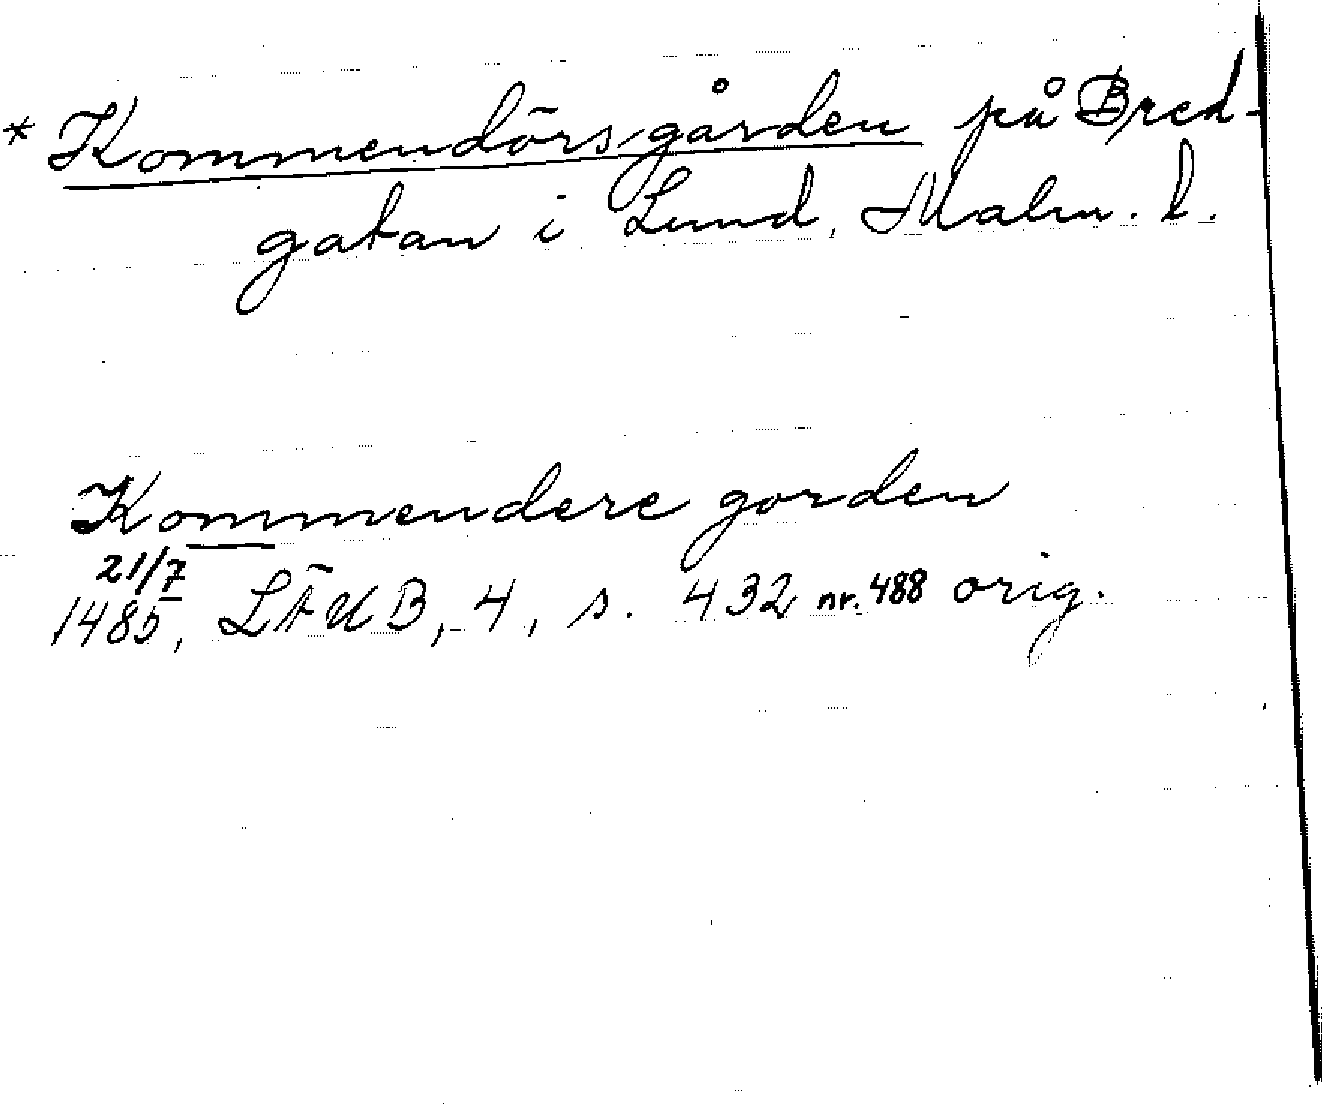 * Kommendörsgården på Bred-
gatan i Lund, Malm. l.
Kommendere gorden
21/7
1485, LÄUB, 4, s. 432 nr. 488 orig.